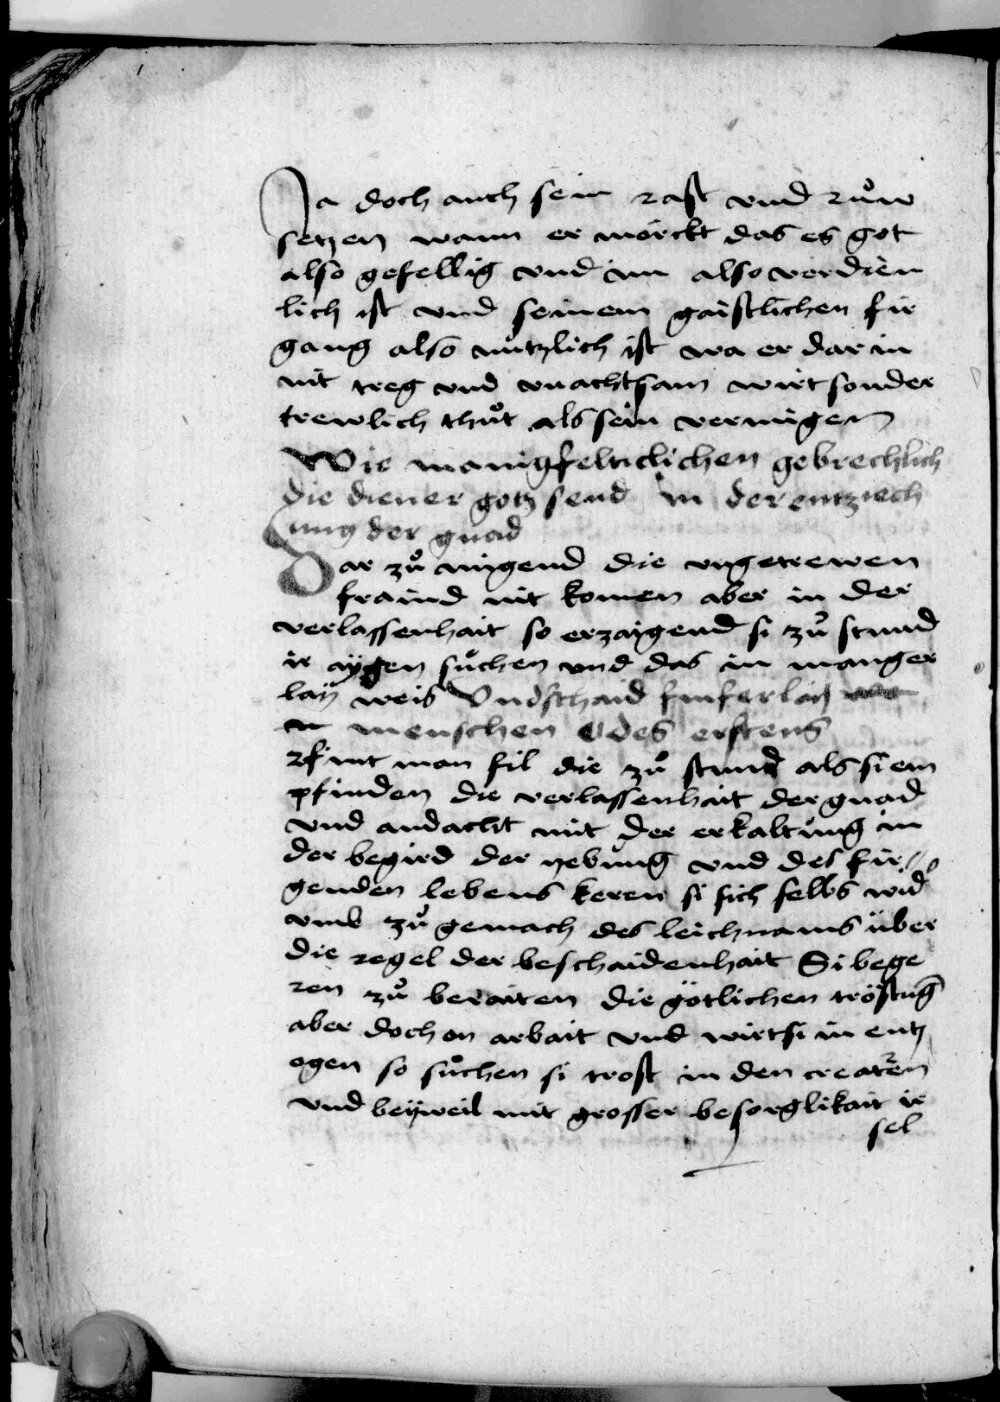 Ja doch auch sein rast vnd růw
setzen wann er mörckt das es got
also gefellig vnd im also verdien
lich ist vnd seinem gaistlichen fir
gang also nützlich ist wa er dar in
nit treg vnd vnachtsam wirt sonder
trewlich thůt als sein vermigen
Wie manigfelticlichen gebrechlich
die diener gotz send in der entziech
ung der gnad
Dar zů migend die vngetrewen
fraind nit komen aber in der
verlassenhait so erzaigend si zů stund
ir aÿgen sůchen vnd das in manger
laÿ weis Vndschaid finferlaÿ
menschen Des ersten
Erfint man fil die zů stund als si em
pfinden die verlassenhait der gnad
vnd andacht mit der erkaltung in
der begird der yebung vnd des fir
genden lebens keren si sich selbs wid
vmb zů gemach des leichnams über
die regel der beschaidenhait Si bege
ren zů beraiten die götlichen tröstug
aber doch on arbait vnd wirt si in entz
ogen so sůchen si trost in den creaturen
vnd beÿweil mit grosser besorglikait ir
sel